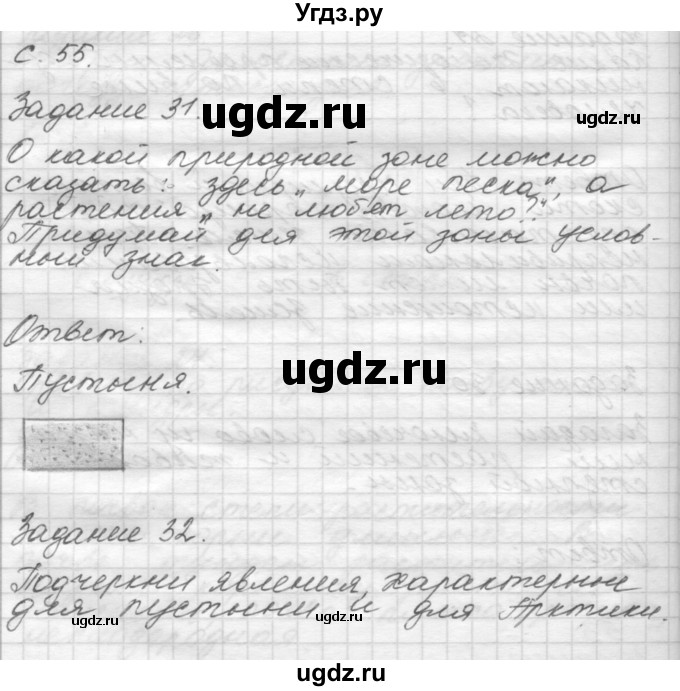 Угдз.ру
с. 55.
Задание 31
ugdz.ru
О какой природной зоне можно
сказать: здесь „море песка", а
растения „не любят лето?"
Придумай для этой зоны услов-
ный знак.
Ответ:
ugdz.ru
Пустыня.
Задание 32.
Подчеркни явления, характерные
для пустыни и для Арктики.
ugdz.ru
ugdz.ru
ugdz.ru